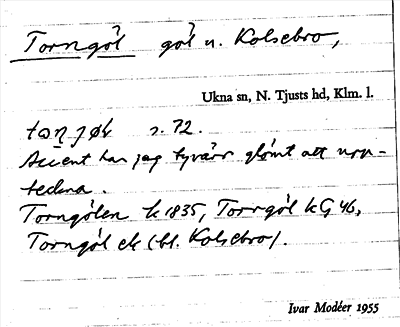 Torngöl göl n. Kolsebro,
Ukna sn, N. Tjusts hd, Klm. l.
s. 72.
Accent har jag tyvärr glömt att upp-
teckna.
Torngölen k 1835, Torrgöl kG 46,
Torngöl ek (bl. Kolsebro).
Ivar Modéer 1955